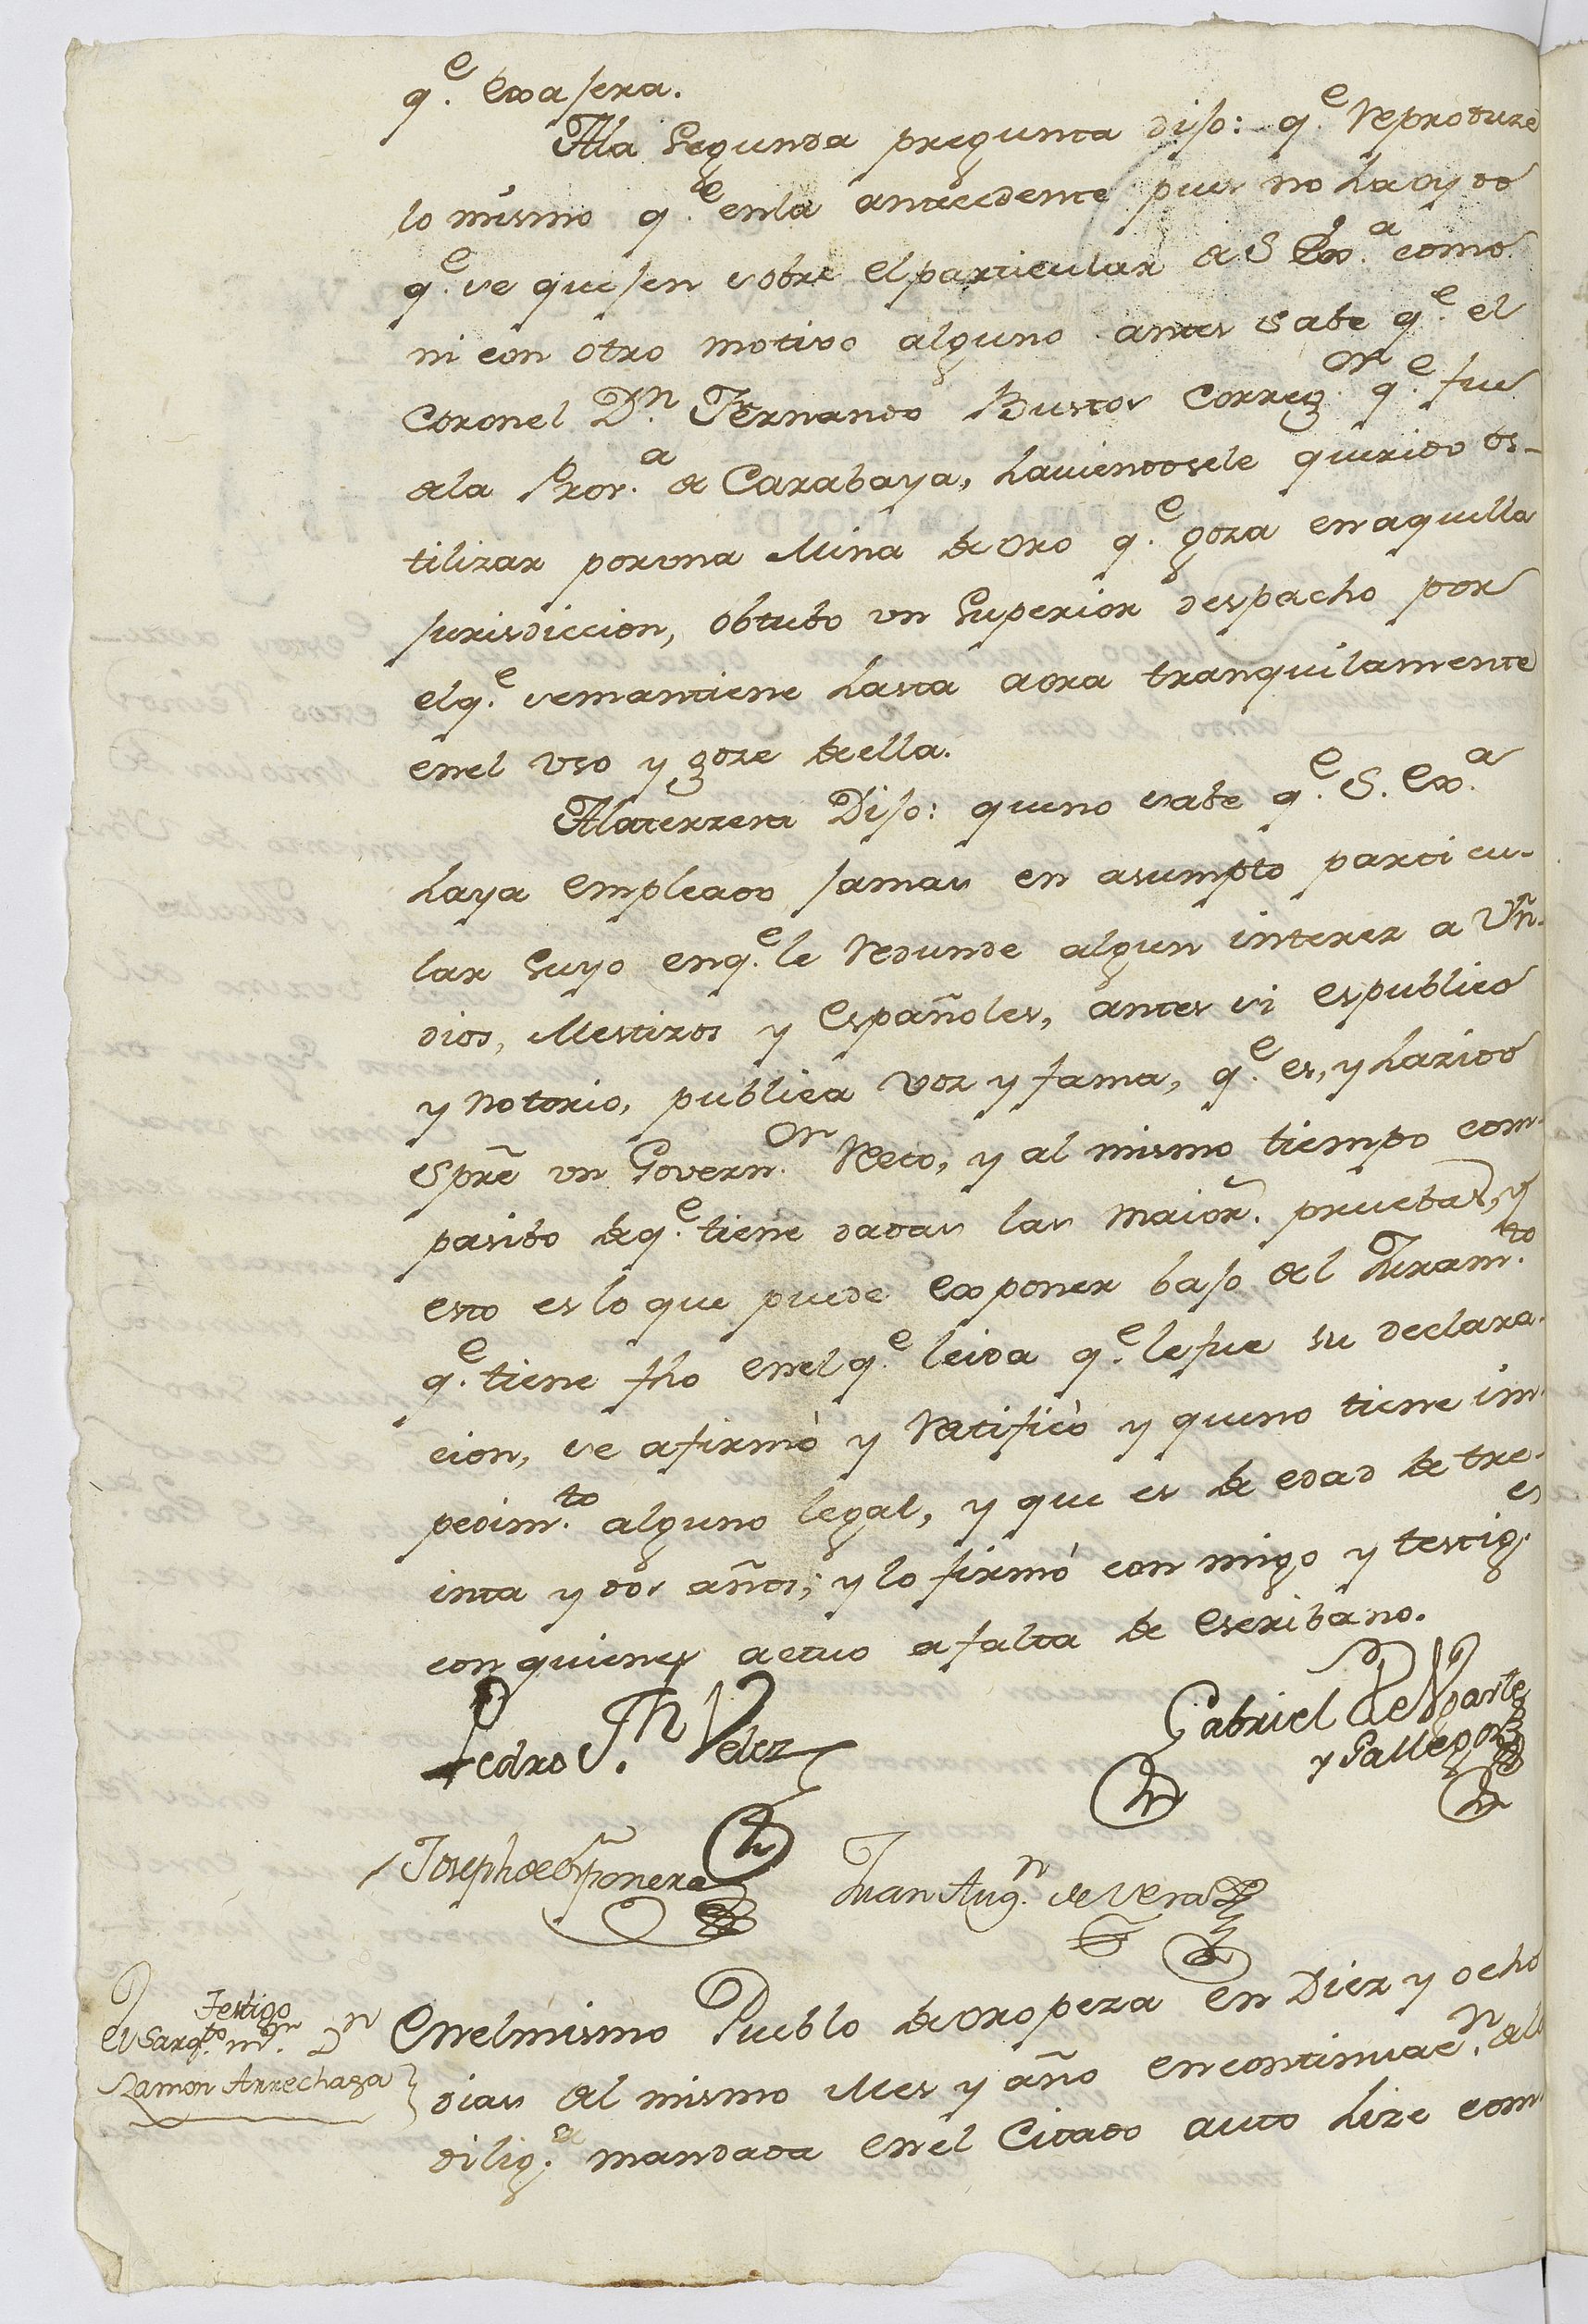 q.e Exasera.
Ala Segunda pregunta dijo: q.e Reproduze
lo mismo q.e enla antecedente pues no ha oydo
q.e se quejen sobre el particular de S Ex.a como
ni con otro motivo alguno antes sabe q.e el
Coronel Dn. Fernando Bustos Correg.or q.e fue
dela Prov.a de Carabaya, haviendosele querido os-
tilizar por una Mina de oro q.e goza en aquella
jurisdiccion, obtubo un Superior despacho por
el q.e se mantiene hasta aora tranquilamente
en el uso y goze de ella.
Ala terzera Dijo: que no sabe q.e S. Ex.a
haya empleado jamas en asumpto particu-
lar suyo en q.e le Redunde algun interes a Yn-
dios, Mestizos y Españoles, antes si es publico
y notorio, publica voz y fama, q.e es, y ha sido
Spre un Govern.or Recto, y al mismo tiempo com-
pasibo de q.e tiene dadas las maior.s pruebas, y
esto es lo que puede exponer bajo del Juram.to
q.e tiene fho en el q.e leida q.e le fue su declara-
cion, se afirmò y Ratificò y que no tiene im-
pedim.to alguno legal, y que es de edad de tre-
inta y dos años; y lo firmò con migo y testig.s
con quienes actuo a falta de Escribano.
Gabriel de Ugarte
y Gallegos
Pedro Jn. Velez
Joseph de
Juan Aug.n de Vera
Testigo
El Sarg.to m.or Dn
Ramon Arrechaga
En el mismo Pueblo de oropeza en Diez y ocho
dias del mismo Mes y año en continuac.n dela
dilig.a mandada en el Citado auto hize com-